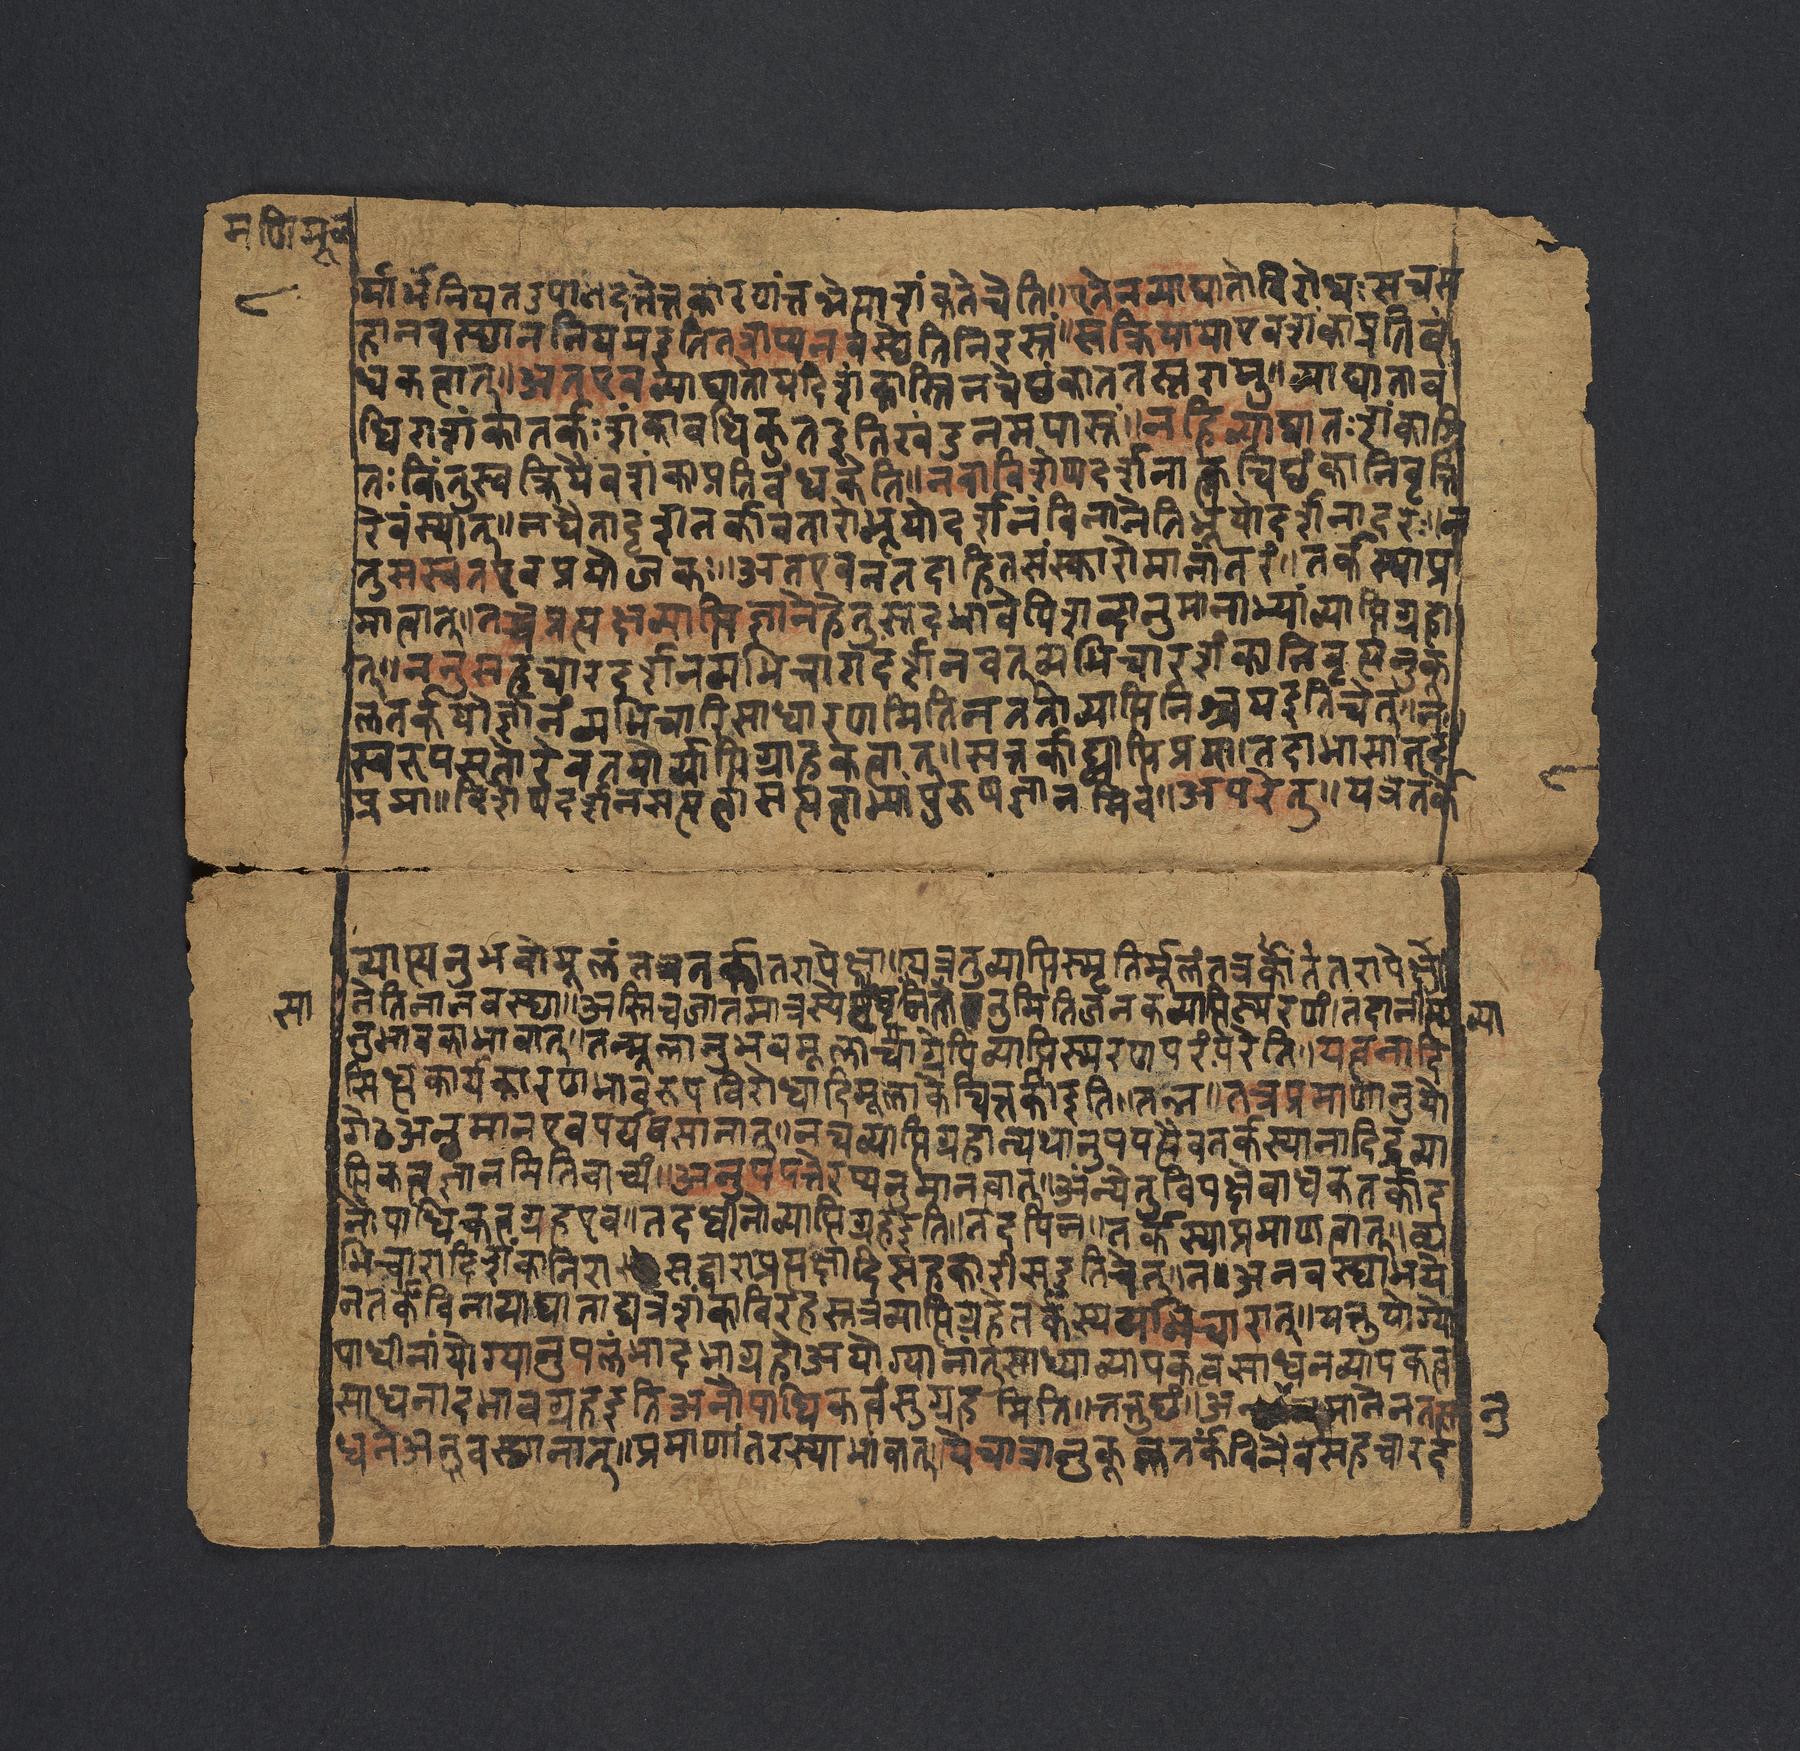 मणिमूल
र्मार्थं नियतउपादत्तेतत्कारणंतन्नेत्याशंकतेचेति॥एतेनव्याघातोविरोधःसचस
हानवस्थाननियमइतितत्राप्यनवस्थेतिनिरस्तं॥स्वक्रियायाएवशंकाप्रतिबं
धकत्वात्॥अतएवव्याघातोयदिशंकास्तिनचेछंकाततस्तराम्॥व्याघाताव
धिराशंकातर्कःशंकावधिकुतइतिखंडनमपास्तं॥नहिव्याघातःशंकाश्रि
तःकिंतुस्वक्रियैवशंकाप्रतिबंधकेति॥नवाविशेषदर्शनात्क्वचिछंकानिवृत्ति
रेवंस्यात्॥नचैतादृशतर्कावतारोभूयोदर्शनंविनानेतिभूयोदर्शनादरः॥न
तुसस्वतएवप्रयोजकः॥अतएवनतदाहितसंस्कारोमानांतरं॥तर्कस्याप्र
मात्वात्॥तच्चप्रत्यक्षव्याप्तिज्ञानेहेतुस्तदभावेपिशब्दानुमानाभ्यांव्याप्तिग्रहा
त्॥ननुसहचारदर्शनव्यभिचारादर्शनवत्व्यभिचारशंकानिवृत्त्यनुकू
लतर्कयोर्ज्ञानंव्यभिचारिसाधारणमितिनततोव्याप्तिनिश्चयइतिचेत्॥न॥
स्वरूपसतोरेवतयोर्व्याप्तिग्राहकत्वात्॥सत्तर्काद्व्याप्तिप्रमा॥तदाभासात्तद
प्रमा॥विशेषदर्शनसत्यत्वासत्यत्वाभ्यांपुरुषज्ञानमिव॥अपरेतु॥यत्रतर्के
व्याप्त्यनुभवोमूलंतत्रतर्कांतरापेक्षा॥यत्रतुव्याप्तिस्मृतिर्मूलंतत्रतर्कांतरापेक्षा
नेतिनानवस्था॥अस्तिचजातमात्रस्येष्टसाधनतानुमितिजनकव्याप्तिस्मरणं॥तदानींव्या
नुभावकाभावात्॥तन्मूलानुभवमूलाचाग्रेपिव्याप्तिस्मरणपरंपरेति॥यत्वनादि
सिद्धकार्यकारणभावरूपविरोधादिमूलाकेचित्तर्काइति॥तन्न॥तत्रप्रमाणानुयो
गेअनुमानएवपर्यवसानात्॥नचव्याप्तिग्रहान्यथानुपपत्त्यैवतर्कस्यानादिसिद्धव्या
प्तिकत्वज्ञानमितिवाच्यं॥अनुपपत्तेरप्यनुमानत्वात्॥अन्येतुविपक्षेबाधकतर्काद
नौपाधिकत्वग्रहएव॥तदधीनोव्याप्तिग्रहइति॥तदपिन॥तर्कस्याप्रमाणत्वात्॥व्य
भिचारादिशंकानिरासद्वाराप्रत्यक्षादिसहकारीसइतिचेत्॥न॥अनवस्थाभये
नतर्कंविनाव्याघाताद्यत्रशंकाविरहस्तत्रव्याप्तिग्रहेतर्कस्यव्यभिचारात्॥यत्तुयोग्यो
पाधीनांयोग्यानुपलंभादभावग्रहोअयोग्यानांतुसाध्याव्यापकत्वसाधनव्यापकत्व
साधनादभावग्रहइतिअनौपाधिकत्वंसुग्रहमिति॥तत्तुछं॥अनुमानेनतत्सा
धनेअनवस्थानात्॥प्रमाणांतरस्याभावात्।येचात्रानुकूलतर्कंविनैवसहचारद